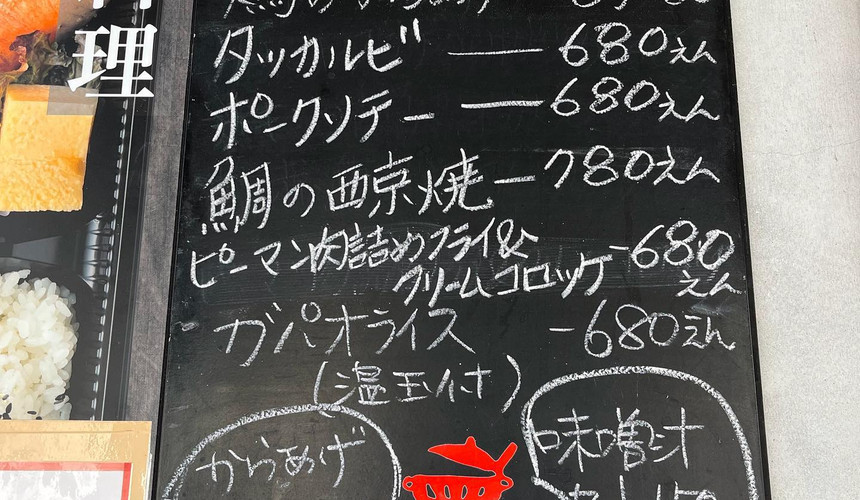 理
タッカルビ — 680えん
ポークソテー — 680えん
鯛の西京焼 — 780えん
ピーマン肉詰めフライ& -680
クリームコロッケ えん
ガパオライス -680えん
(温玉付)
からあげ
味噌汁